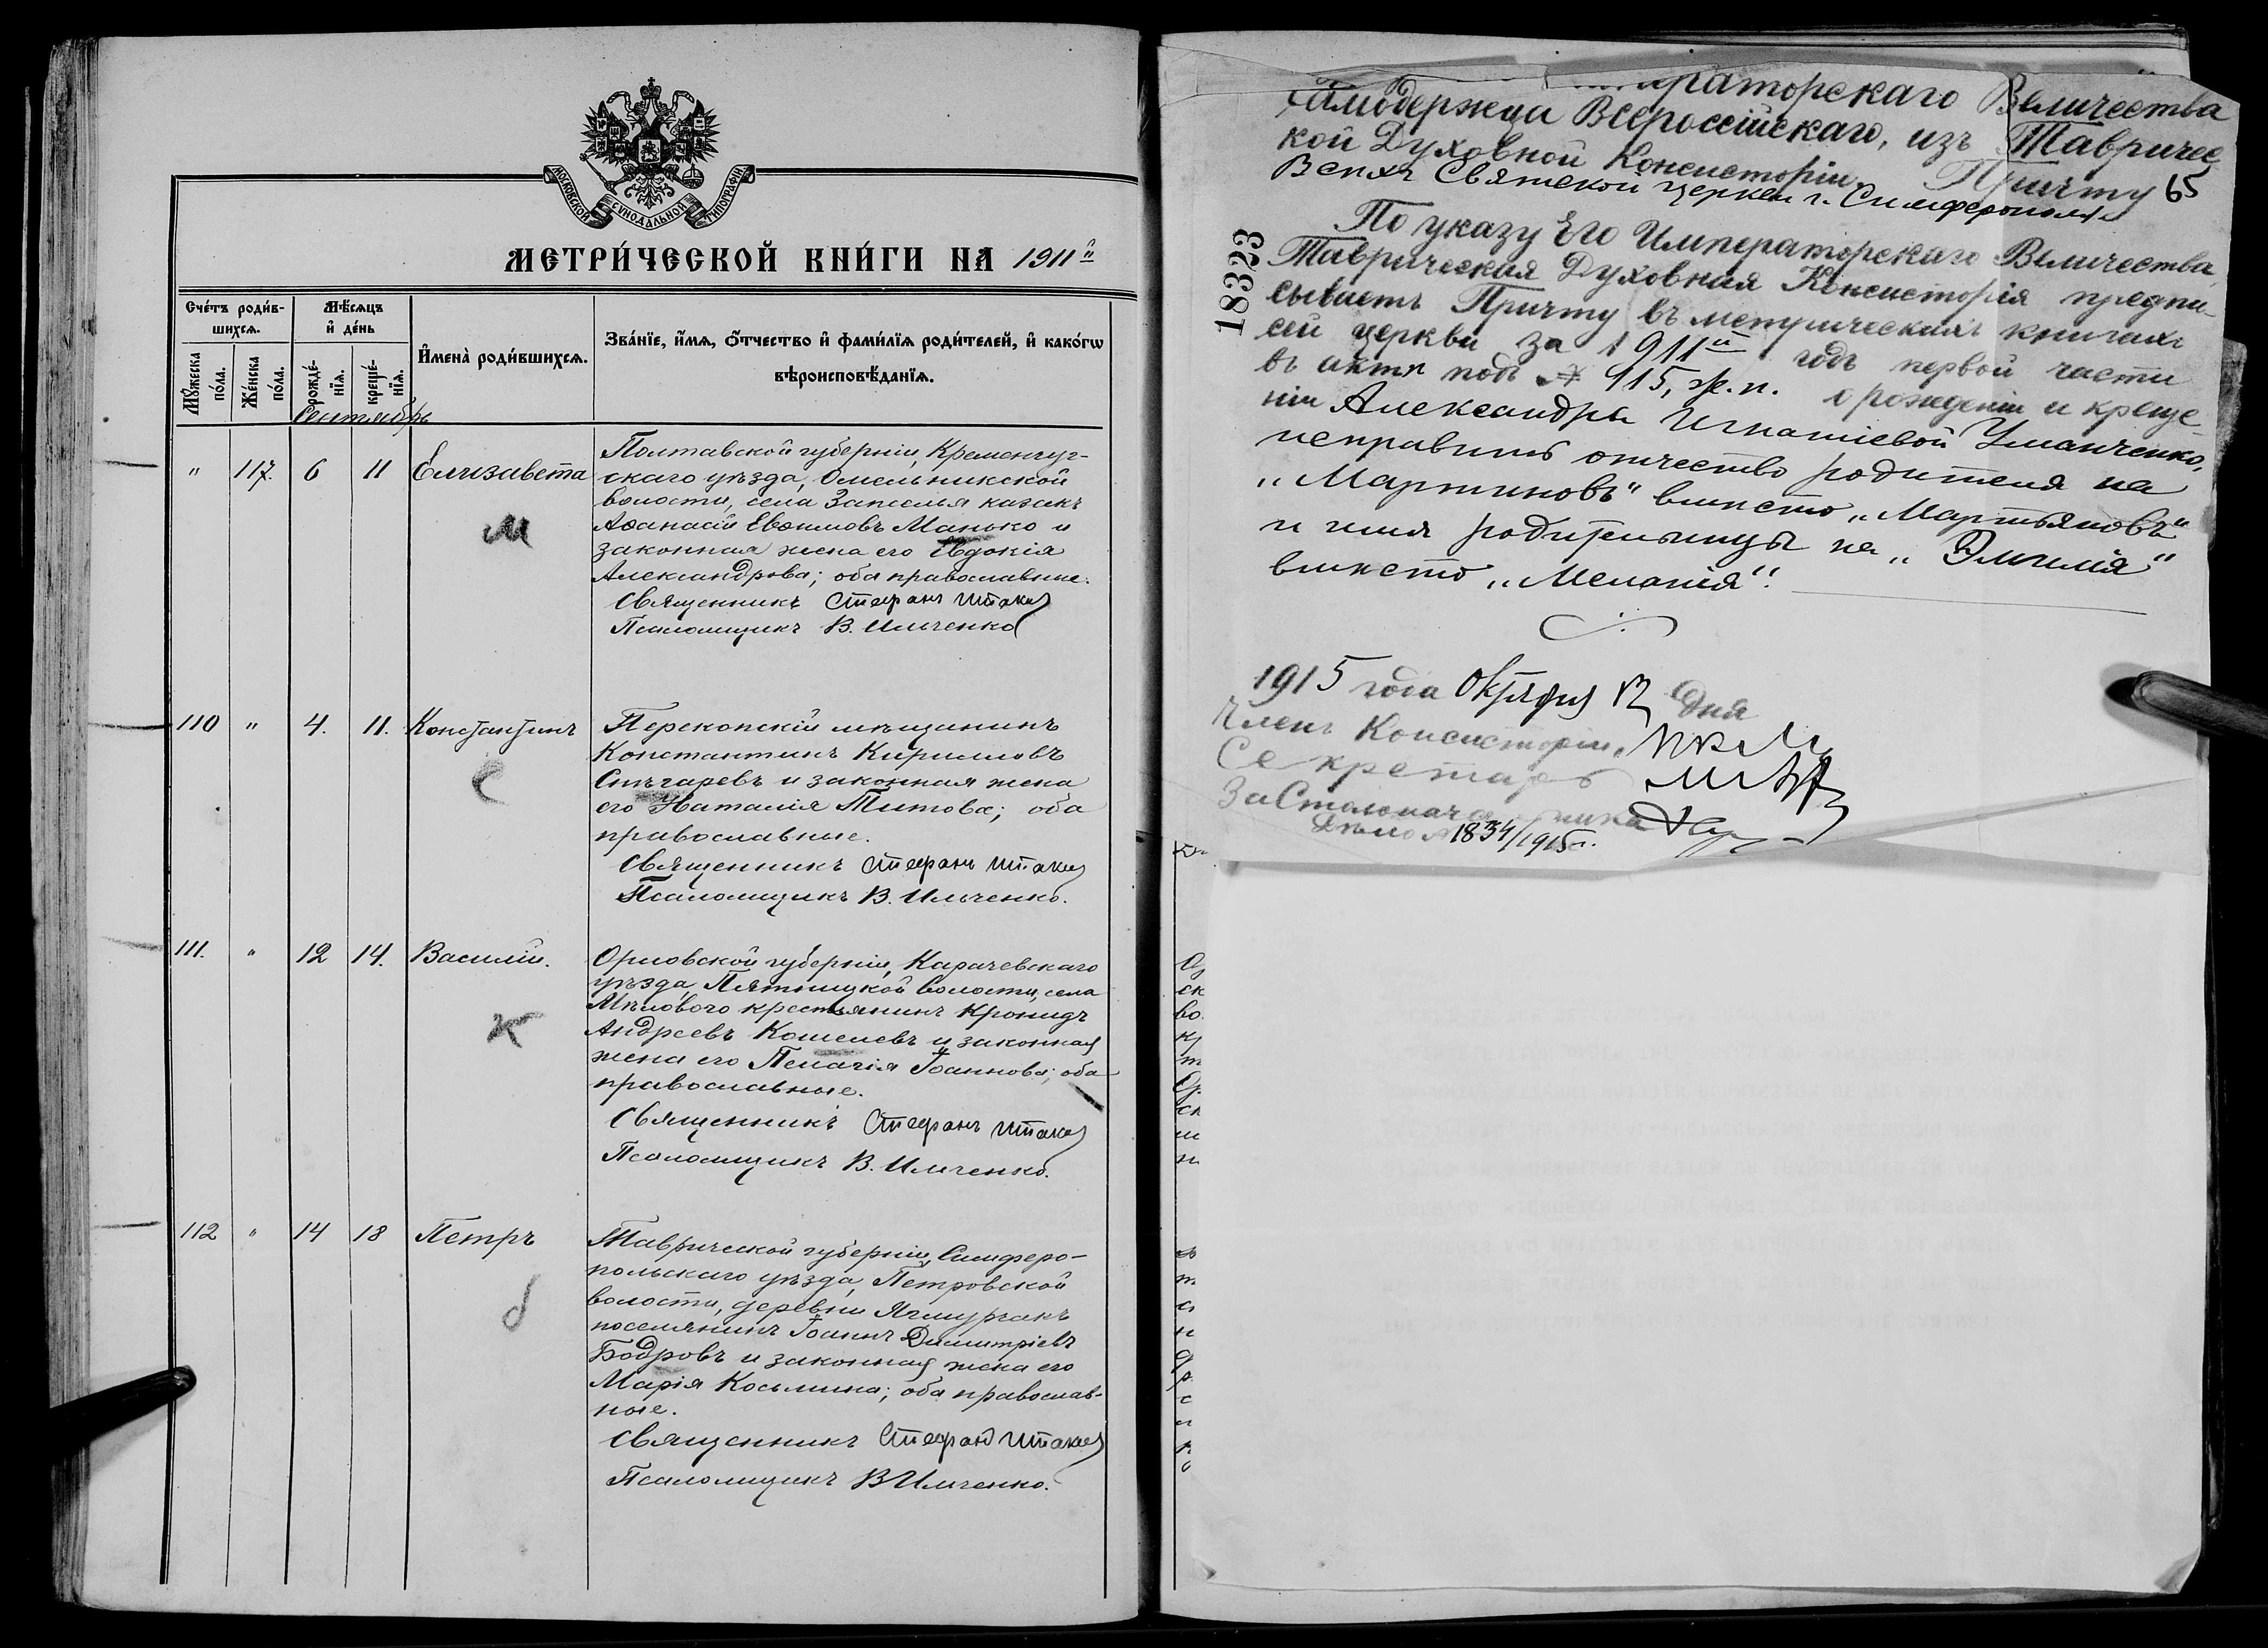 МОСКОВСКОЙ СѴНОДАЛЬНОЙ ТИПОГРАФІИ
МЕТРИ́ЧЕСКОЙ КНИ́ГИ НА 1911й
Сче́тъ роди́в-
шихсѧ.
Мꙋ́жеска
по́ла.
Же́нска
по́ла.
Мѣ́сѧцъ
и҆ де́нь
рожде́-
нїѧ.
креще́-
нїѧ.
Сентябрь
И҆мена̀ роди́вшихсѧ.
Зва́нїе, и҆́мѧ, ѻ҆́тчество и҆ фами́лїѧ роди́телей, и҆ како́гѡ
вѣроисповѣ́данїѧ.
" 117. 6 11 Елизавета
Полтавской губерніи, Кременчуг-
скаго уѣзда, Омельникской
волости, села Запселья казакъ
Аѳанасій Евѳимовъ Манько и
законная жена его Евдокія
Александрова; оба православные.
Священникъ Стефанъ
Псаломщикъ В. Ильченко
М
110 " 4. 11. Константинъ
Перекопскій мѣщанинъ
Константинъ Кирилловъ
Снѣгаревъ и законная жена
его Наталія Титова; оба
православные.
Священникъ Стефанъ
Псаломщикъ В. Ильченко.
С
111. " 12 14. Василій.
Орловской губерніи, Карачевскаго
уѣзда, Пятницкой волости, села
Мѣлового крестьянинъ Кронидъ
Андреевъ Кошелевъ и законная
жена его Пелагія Іоаннова; оба
православные.
Священникъ Стефанъ
Псаломщикъ В. Ильченко.
К
112 " 14 18 Петръ
Таврической губерніи, Симферо-
польскаго уѣзда, Петровской
волости, деревни
поселянинъ Іоаннъ Димитріевъ
Бодровъ и законная жена его
Марія Косьмина; оба православ-
ные.
Священникъ Стефанъ
Псаломщикъ В Ильченко.
б
Величества
Самодержца Всероссійскаго, изъТавричес
кой Духовной Консисторіи, Причту 65
Всѣхъ Святской церкви г. Симферополя
18323
По указу Его Императорскаго Величества,
Таврическая Духовная Консисторія предпи-
сываетъ Причту въ метрическихъ книгахъ
сей церкви за 1911й годъ первой части
въ актѣ подъ № 115, ж.п. о рожденіи и креще
ніи Александры Игнатіевой Уманченко,
исправить отчество родителя на
„Мартиновъ" вмѣсто „Мартьяновъ"
и имя родительницы на „Эмилія"
вмѣсто „Меланія".
1915 года Октября 12 дня
Членъ Консисторіи,
Секретарь
За Столоначальника
Дѣло № 1834/1915 г.